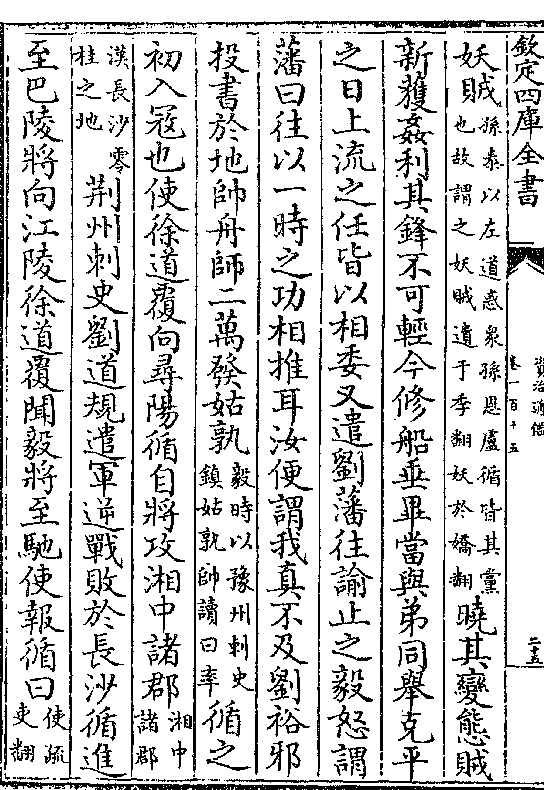 欽定四庫全書
資治通鑑
卷一百十五
二十五
妖賊孫泰以左道惑衆孫恩盧循皆其黨也故謂之妖賊遺于季翻妖於嬌翻曉其變態賊
新獲姦利其鋒不可輕今修船垂畢當與弟同舉克平
之日上流之任皆以相委又遣劉藩往諭止之毅怒謂
藩曰往以一時之功相推耳汝便謂我真不及劉裕邪
投書於地帥舟師二萬發姑孰毅時以豫州刺史鎮姑孰帥讀曰率循之
初入寇也使徐道覆向尋陽循自將攻湘中諸郡湘中諸郡
漢長沙零桂之地荆州刺史劉道規遣軍逆戰敗於長沙循進
至巴陵將向江陵徐道覆聞毅將至馳使報循曰使疏吏翻